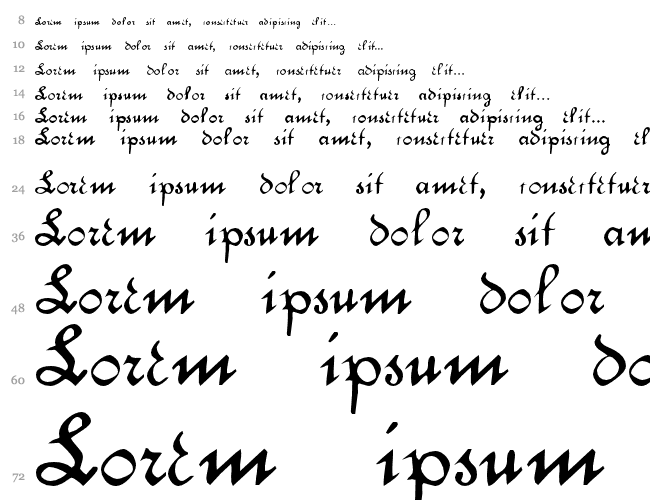 8 Lorem ipsum dolor sit amet, consectetuer adipiscing elit...
10 Lorem ipsum dolor sit amet, consectetuer adipiscing elit...
12 Lorem ipsum dolor sit amet, consectetuer adipiscing elit...
14 Lorem ipsum dolor sit amet, consectetuer adipiscing elit...
16 Lorem ipsum dolor sit amet, consectetuer adipiscing elit...
18 Lorem ipsum dolor sit amet, consectetuer adipiscing el
24 Lorem ipsum dolor sit amet, consectetuer
36 Lorem ipsum dolor sit am
48 Lorem ipsum dolor
60 Lorem ipsum do
72 Lorem ipsum